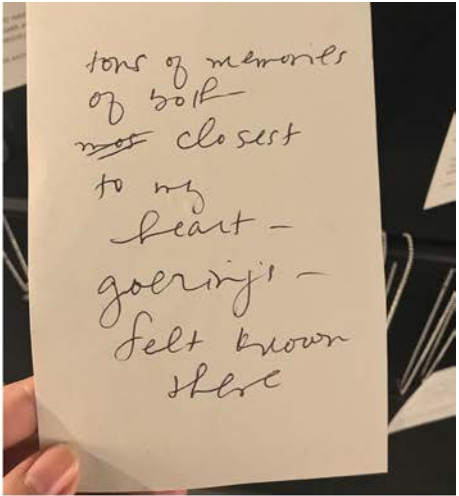 tons of memories
of both
mos closest
to my
heart –
goerings –
felt known
there